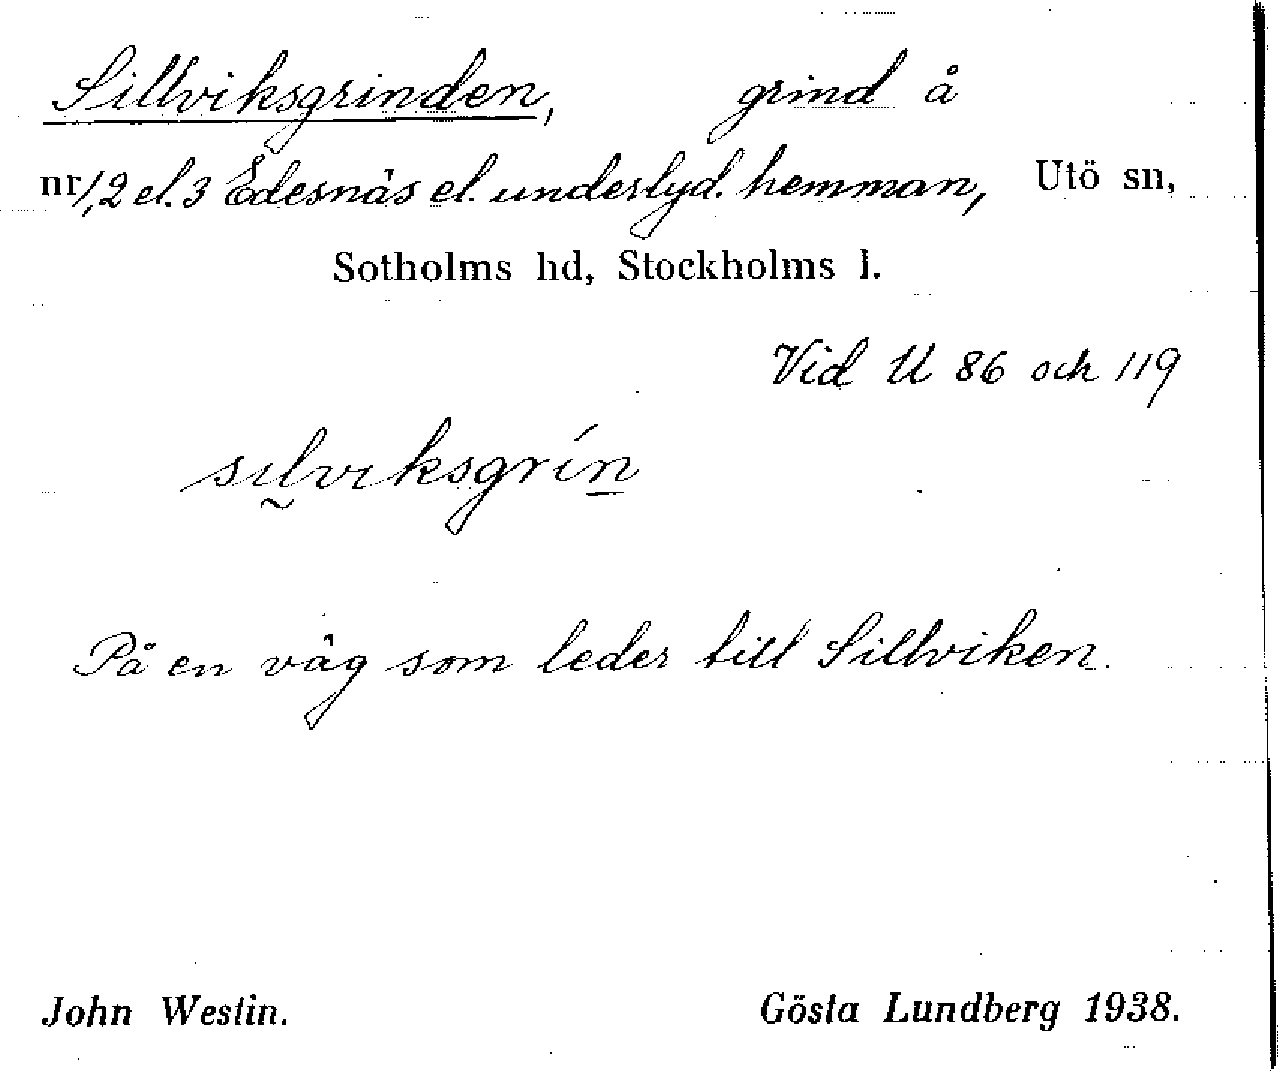 Sillviksgrinden, grind å
nr 1, 2 el. 3 Edesnäs el. underlyd. hemman, Utö sn,
Sotholms hd, Stockholms l.
Vid U 86 och 119
sılvıksgrín
På en väg som leder till Sillviken.
John Westin. Gösta Lundberg 1938.